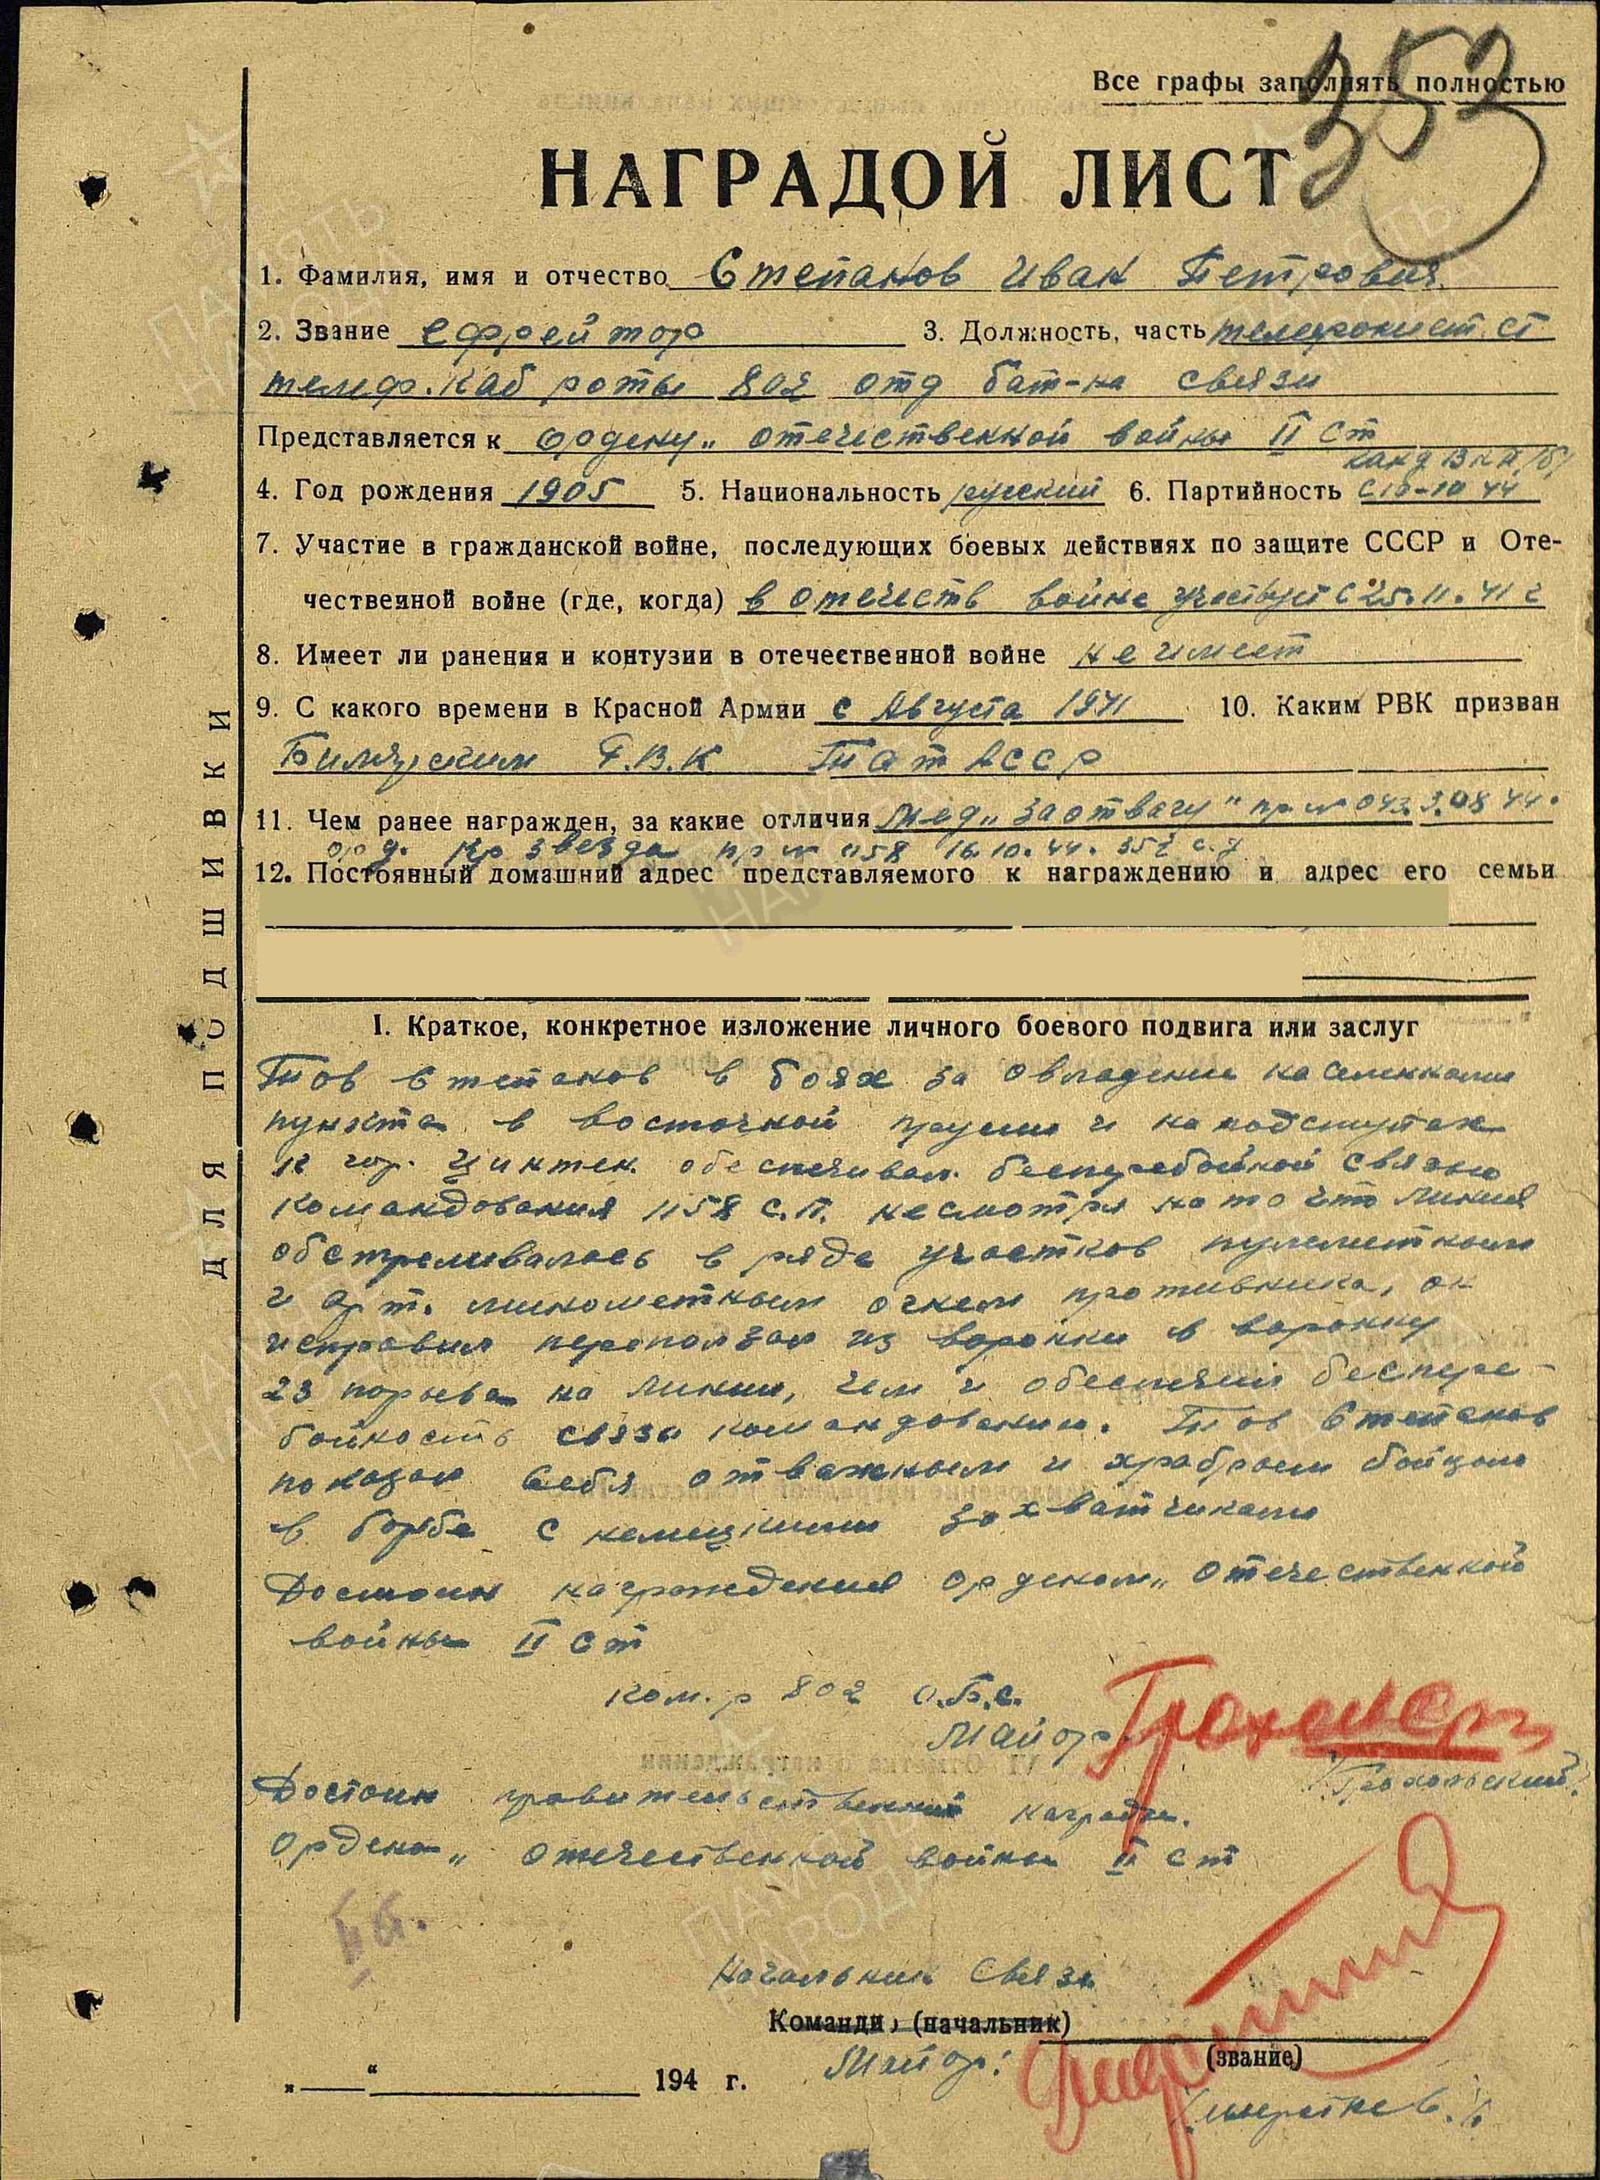 353
Все графы заполнять полностью
НАГРАДОЙ ЛИСТ
1. Фамилия, имя и отчество Степанов Иван Петрович
2. Звание ефрейтор 3. Должность, часть телефонист ст
телеф. каб роты 802 отд бат-на связи
Представляется к ордену „отечественной войны II ст
канд ВКП/б/
4. Год рождения 1905 5. Национальность русский 6. Партийность с 10-10 44
7. Участие в гражданской войне, последующих боевых действиях по защите СССР и Оте-
чественной войне (где, когда) в отечеств войне участвует с 25.11.41 г
8. Имеет ли ранения и контузии в отечественной войне не имеет
9. С какого времени в Красной Армии с Августа 1941 10. Каким РВК призван
Билярским Р.В.К ТатАССР
11. Чем ранее награжден, за какие отличия Мед „За отвагу" пр № 043 9.08 44.
орд. Кр звезда пр № 058 16.10.44. 352 с.д
12. Постоянный домашний адрес представляемого к награждению и адрес его семьи
ДЛЯ ПОДШИВКИ
I. Краткое, конкретное изложение личного боевого подвига или заслуг
Тов Степанов в боях за овладение населенными
пункта в восточной прусии и на подступах
к гор. Цинтен обеспечивал бесперебойной связью
командования 1158 С.П. несмотря на то что линия
обстреливалась в ряде участков пулеметным
и арт. минометным огнем противника, он
исправил переползая из воронки в воронку
23 порыва на линии, чем и обеспечил беспере-
бойность связи командованию. Тов Степанов
показал себя отважным и храбрым бойцом
в борьбе с немецкими захватчиками
Достоин награждения орденом „отечественной
войны II ст
Ком-р 802 О.Б.С.
Майор
/Грохольский/
Достоин правительственной награды.
Ордена „отечественной войны II ст
Начальник Связи
Командир (начальник)
(звание)
Майор:
„ “ 194 г.
ПАМЯТЬ НАРОДА